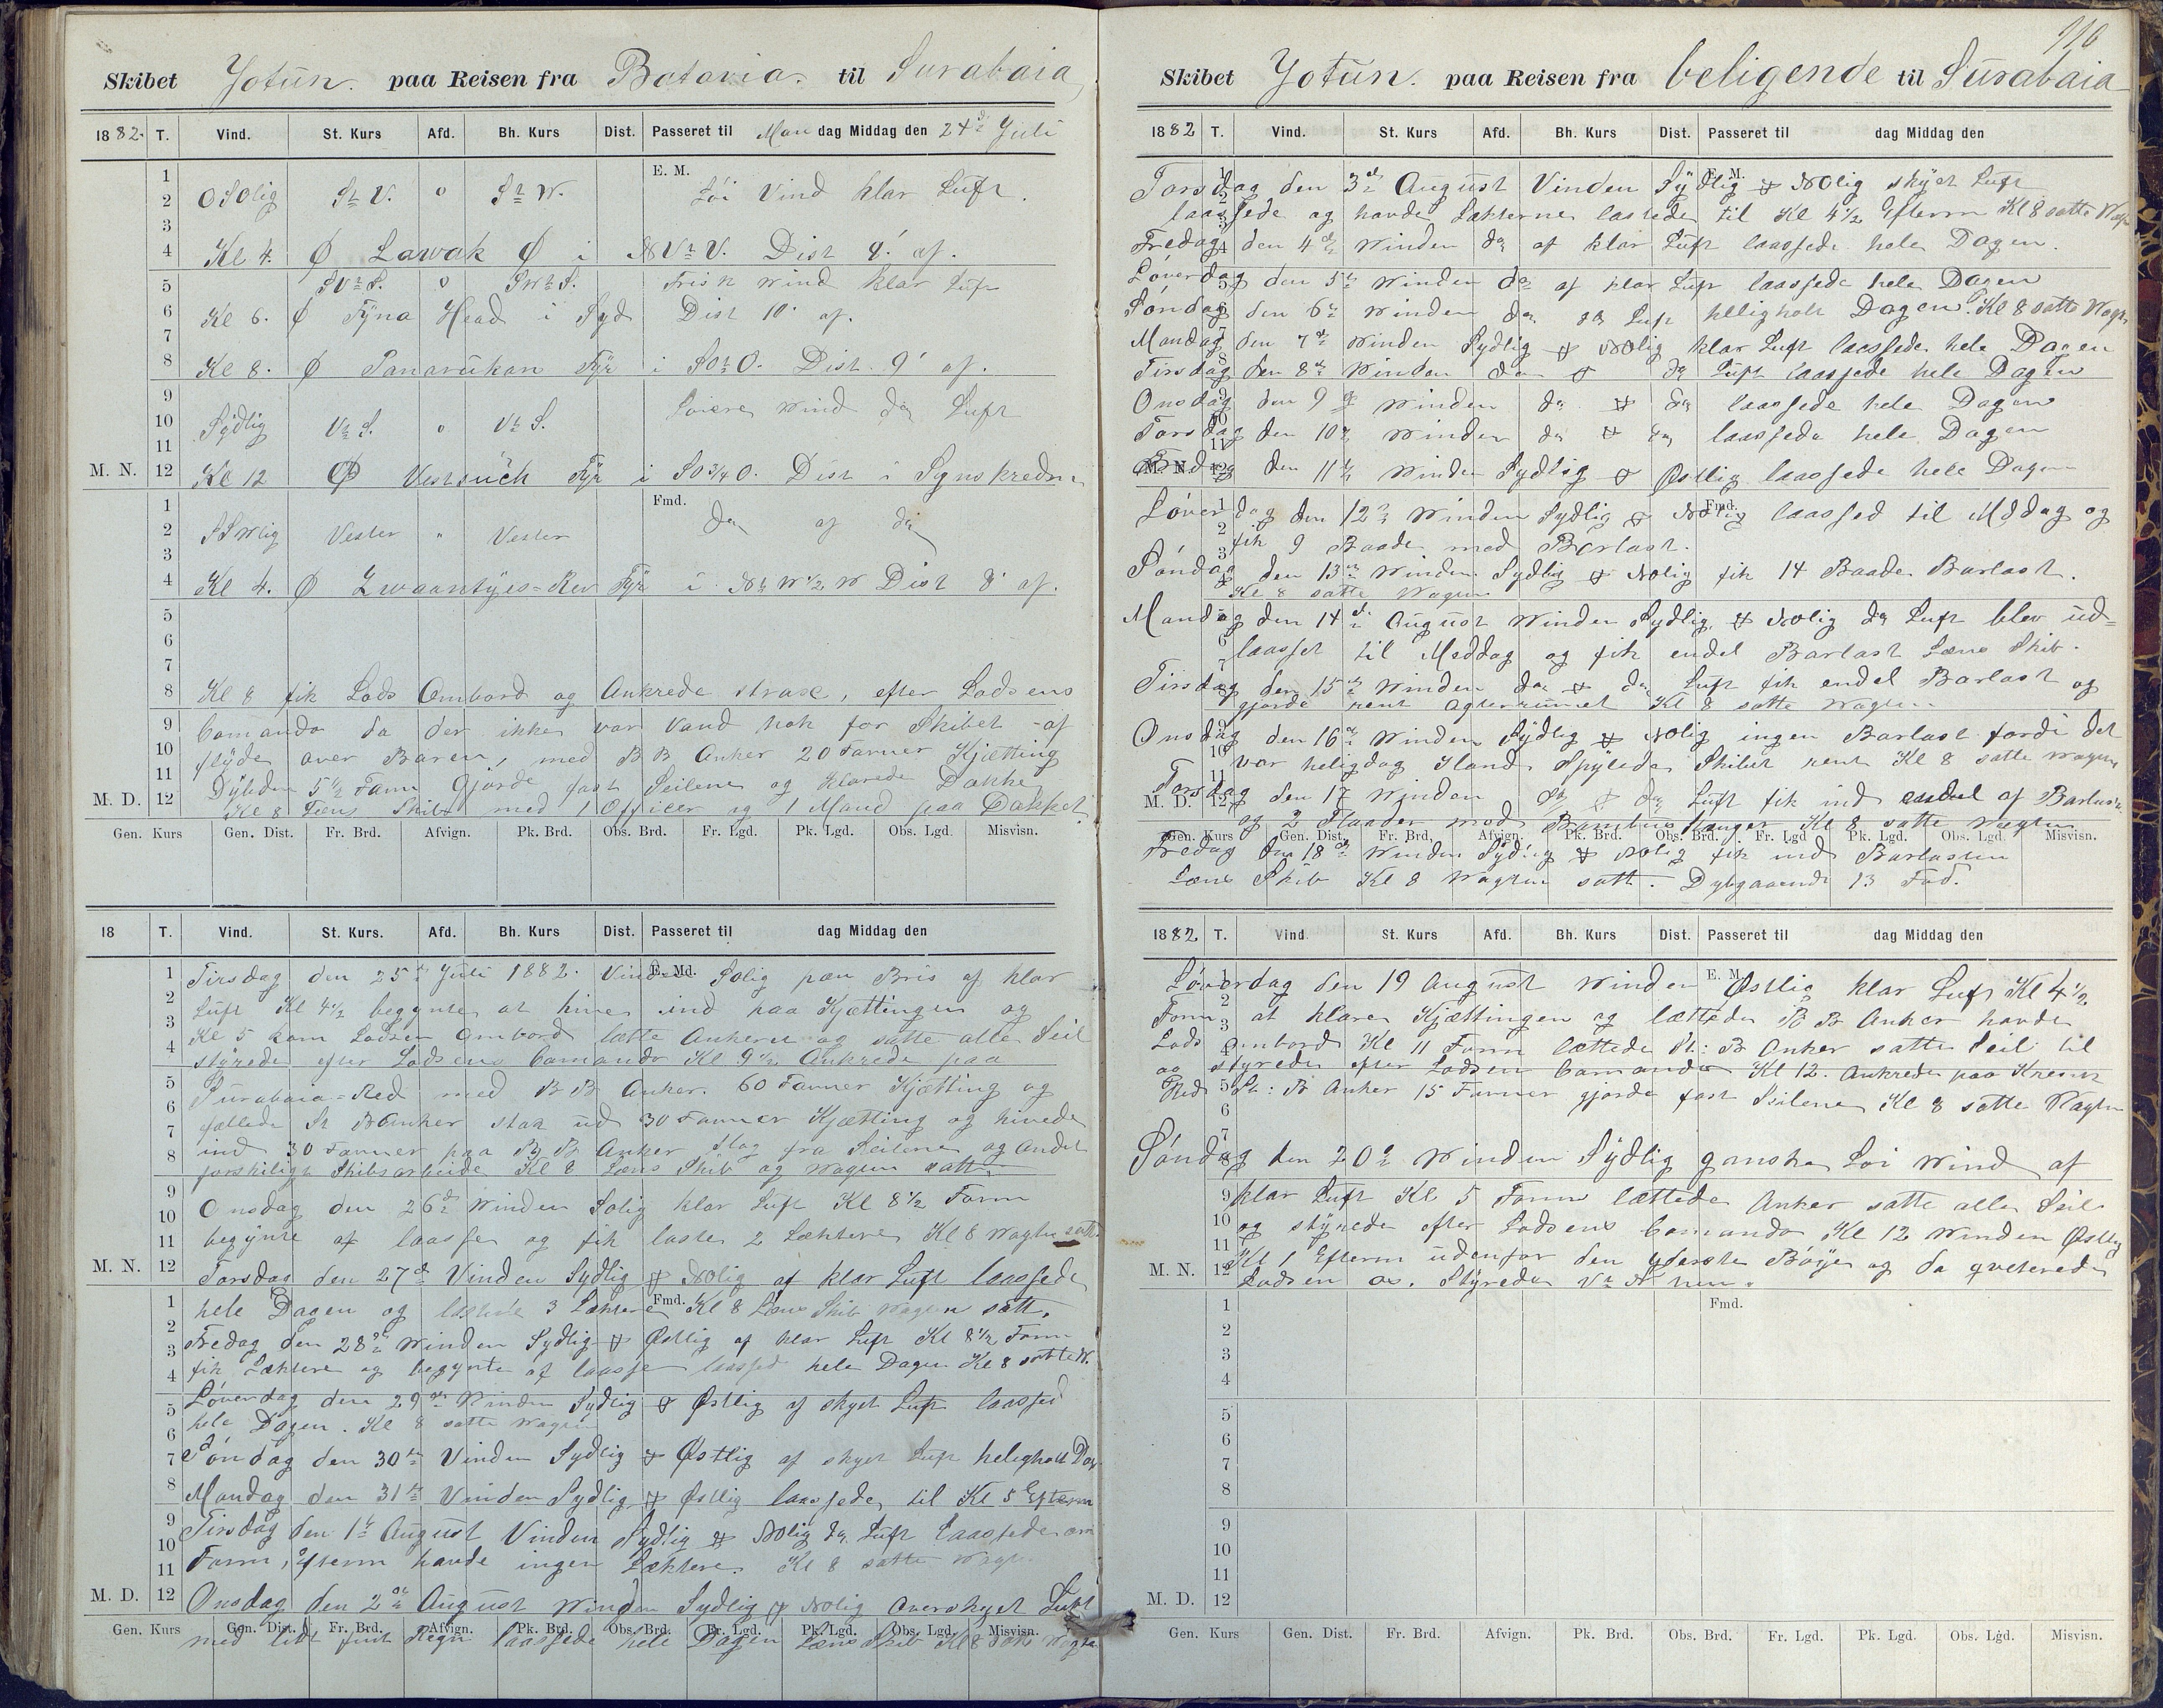 Skibet Jotun. paa Reisen fra Batavia. til Surabaia
1882. T. Vind. St. Kurs Afd. Bh. Kurs Dist. Passeret til Man dag Middag den 24de Juli
E. M.
OSOlig St V. o St W. Löi Vind klar Luft.
Kl 4. Ø Lawak Ø i NVtV. Dist 8' af.
SVtS. o SWtS. Frisk Wind klar Luft
Kl 6. Ø Tyna Head i Syd Dist 10' af.
Kl 8. Ø Panarukan Fyr i SOtO. Dist 9' af.
Sydlig VtS. o VtS. Löiere Wind do Luft
M. N. Kl 12 Ø Fyr i SO 3/4 O. Dist i Synskredsen
Fmd.
SSWlig Vester " Vester do af do
Kl 4. Ø Zwaantyes=Rev Fyr i NtW 1/2 W Dist 8' af.
Kl 8 fik Lods Ombord og Ankrede strax, efter Lodsens
Comando da der ikke var Vand nok for Skibet at
flyde over Baren, med BB Anker 20 Favner Kjætting
Dybden 5 1/2 Favn Gjorde fast Seilene og klarede Dække
M. D. Kl 8 Læns Skib med 1 Officer og 1 Mand paa Dækket
Gen. Kurs Gen. Dist. Fr. Brd. Afvign. Pk. Brd. Obs. Brd. Fr. Lgd. Pk. Lgd. Obs. Lgd. Misvisn.
18 T. Vind. St. Kurs. Afd. Bh. Kurs Dist. Passeret til dag Middag den
E. Md.
Tirsdag den 25de Juli 1882. Vinden Solig pæn Bris af klar
Luft Kl 4 1/2 begynte at hive ind paa Kjættingen og
Kl 5 kom Lodsen Ombord lætte Ankeret og satte alle Seil
styrede efter Lodsens Comando Kl 9 1/2 Ankrede paa
Surabaia=Red med BB Anker. 60 Favner Kjætting og
fællede St B Anker stak ud 30 Favner Kjætting og hivede
ind 30 Favner paa BB Anker slog fra Seilene og Andet
forskiligt Skibsarbeide Kl 8 Læns Skib og Wagten satt
Onsdag den 26de Winden Solig klar Luft Kl 8 1/2 Form
begynte at laasse og fik laste 2 Læktere Kl 8 Wagten satt.
M. N. Torsdag den 27de Vinden Sydlig & Nolig af klar Luft laassede
hele Dagen og 3 Læktere Fmd. Kl 8 Læns Skib Wagten satt.
Fredag den 28de Winden Sydlig & Østlig af klar Luft Kl 8 1/2 Form
fik Læktere og begynte at laasse laassed hele Dagen Kl 8 satte W.
Løverdag den 29de Winden Sydlig & Østlig af skyet Luft laassed
hele Dagen. Kl 8 satte Wagten
Söndag den 30te Vinden Sydlig & Østlig af skyet Luft heligholt Dag
Mandag den 31te Vinden Sydlig & Østlig laassede til Kl 5 Efterm
Tirsdag den 1te August Vinden Sydlig & Nolig do Luft Laassede om
Form, Efterm havde ingen Læktere. Kl 8 satte Wagt.
M. D. Onsdag den 2de August Winden Sydlig & Nolig Overskyet Luft
Gen. Kurs Gen. Dist. Fr. Brd. Afvign. Pk. Brd. Obs. Brd. Fr. Lgd. Pk. Lgd. Obs. Lgd. Misvisn.
med lidt fint Regn laassede hele Dagen Læns Skib Kl 8 satt Wagten
110
Skibet Jotun. paa Reisen fra beligende til Surabaia
1882 T. Vind. St. Kurs Afd. Bh. Kurs Dist. Passeret til dag Middag den
E. M.
Torsdag den 3de August Vinden Sydlig & Nolig skyet Luft
laassede og havde Lækterne lastede til Kl 4 1/2 Efterm Kl 8 satte Wagt
Fredag den 4de Winden do af klar Luft laassede hele Dagen.
Løverdag den 5te Winden do af klar Luft laassede hele Dagen
Søndag den 6te Winden do do Luft heligholt Dagen. Kl 8 satte Wagt
Mandag den 7de Winden Sydlig & Nolig klar Luft laassede hele Dagen
Tirsdag den 8de Winden do & do Luft laassede hele Dagen
Onsdag den 9de Winden do & do laassede hele Dagen
Torsdag den 10de Winden do & do laassede hele Dagen
M. N. Fredag den 11te Winden Sydlig & Østlig laassede hele Dagen
Løverdag den 12te Winden Sydlig & Nolig Fmd. laassed til Middag og
fik 9 Baade med Barlast.
Søndag den 13de Winden Sydlig & Nolig fik 14 Baade Barlast.
Kl 8 satte Wagten
Mandag den 14de August Winden Sydlig & Nolig do Luft blev ud=
laasset til Meddag og fik endel Barlast Læns Skib.
Tirsdag den 15de Winden do & do Luft fik endel Barlast og
gjorde rent Agterrumet Kl 8 satte Wagten
Onsdag den 16de Winden Sydlig & Nolig ingen Barlast fordi det
var heligdag Iland Spylede Skibet rent Kl 8 satte Wagten
M. D. Torsdag den 17 Winden do & do Luft fik ind endel af Barlast
og 2 Flaader med Bambus Stanger Kl 8 satte Wagten
Gen. Kurs Gen. Dist. Fr. Brd. Afvign. Pk. Brd. Obs. Brd. Fr. Lgd Pk. Lgd. Obs. Lgd. Misvisn.
Fredag den 18de Winden Sydlig & Nolig fik ind Barlasten
Læns Skib Kl 8 Wagten satt. Dybgaaende 13 Fod.
1882 T. Vind. St. Kurs Afd. Bh. Kurs Dist. Passeret til dag Middag den
E. M.
Løverdag den 19 August Winden Østlig klar Luft Kl 4 1/2
Form at klare Kjættingen og lættede BB Anker havde
Lods ombord Kl 11 Form lættede St: B Anker satte Seil til
og styrede efter Lodsen Comando Kl 12. Ankrede paa
Red St: B Anker 15 Favner gjorde fast Seilene Kl 8 satte Wagten
Søndag den 20de Winden Sydlig ganske Löi Wind af
klar Luft Kl 5 Form lættede Anker satte alle Seil
og styrede efter Lodsens Comando Kl 12 Winden Østlig
Kl 1 Efterm udenfor den yderste Bøye og da qviterede
M. N. Lodsen os. Styrede
Fmd.
M. D.
Gen. Kurs Gen. Dist. Fr. Brd. Afvign. Pk. Brd. Obs. Brd. Fr. Lgd. Pk. Lgd. Obs. Lgd. Misvisn.